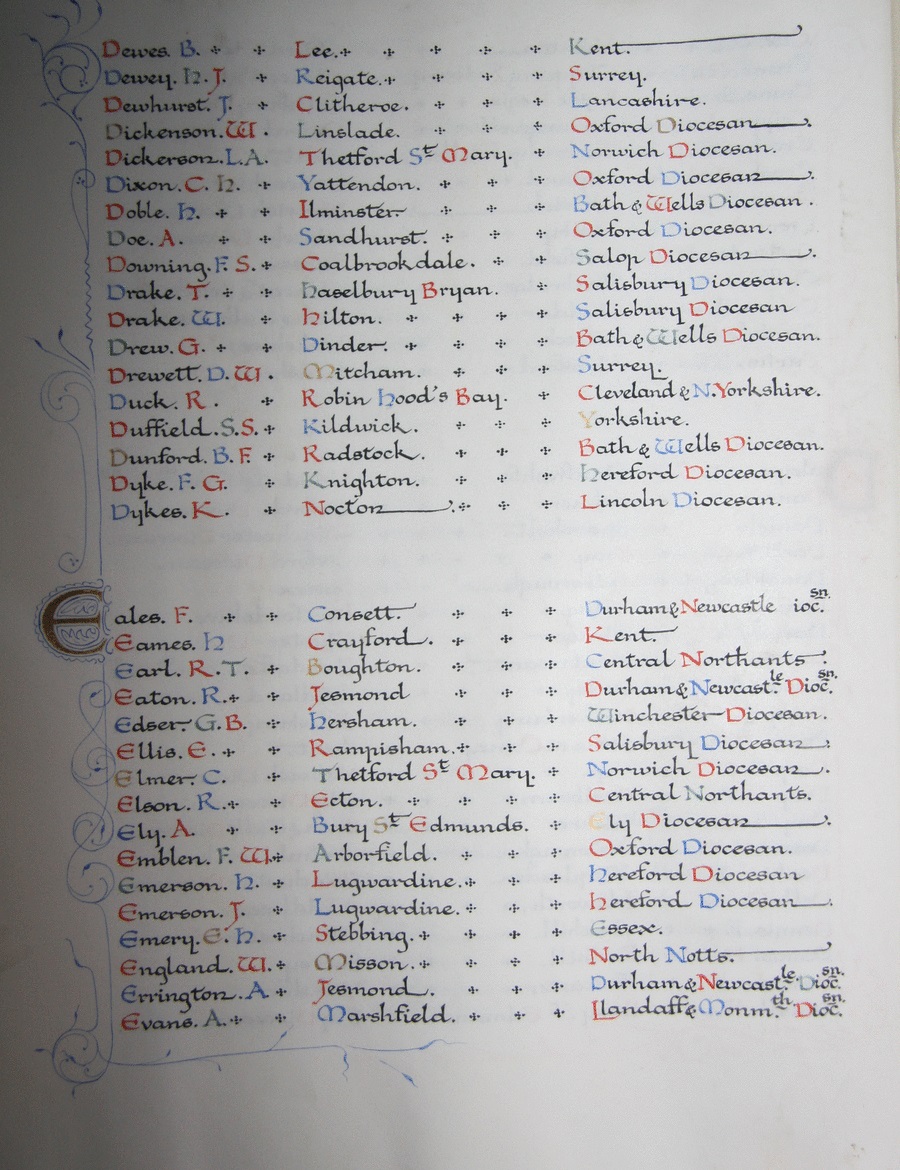 Dewes. B. Lee. Kent.
Dewey. H. J. Reigate. Surrey.
Dewhurst. J. Clitheroe. Lancashire.
Dickenson. W. Linslade. Oxford Diocesan.
Dickerson. L. A. Thetford St Mary. Norwich Diocesan.
Dixon. C. H. Yattendon. Oxford Diocesan.
Doble. H. Ilminster. Bath & Wells Diocesan.
Doe. A. Sandhurst. Oxford Diocesan.
Downing. F. S. Coalbrookdale. Salop Diocesan.
Drake. T. Haselbury Bryan. Salisbury Diocesan.
Drake. W. Hilton. Salisbury Diocesan
Drew. G. Dinder. Bath & Wells Diocesan.
Drewett. D. W. Mitcham. Surrey.
Duck. R. Robin Hood's Bay. Cleveland & N. Yorkshire.
Duffield. S. S. Kildwick. Yorkshire.
Dunford. B. F. Radstock. Bath & Wells Diocesan.
Dyke. F. G. Knighton. Hereford Diocesan.
Dykes. K. Nocton. Lincoln Diocesan.
Eales. F. Consett. Durham & Newcastle ioc.sn.
Eames. H Crayford. Kent.
Earl. R. T. Boughton. Central Northants.
Eaton. R. Jesmond Durham & Newcast.le Dioc.sn.
Edser. G. B. Hersham. Winchester Diocesan.
Ellis. E. Rampisham. Salisbury Diocesan.
Elmer. C. Thetford St Mary. Norwich Diocesan.
Elson. R. Ecton. Central Northants.
Ely. A. Bury St Edmunds. Ely Diocesan.
Emblen. F. W. Arborfield. Oxford Diocesan.
Emerson. H. Lugwardine. Hereford Diocesan
Emerson. J. Lugwardine. Hereford Diocesan.
Emery. E. H. Stebbing. Essex.
England. W. Misson. North Notts.
Errington. A Jesmond. Durham & Newcast.le Dioc.sn.
Evans. A. Marshfield. Llandaff & Monm.th Dioc.sn.